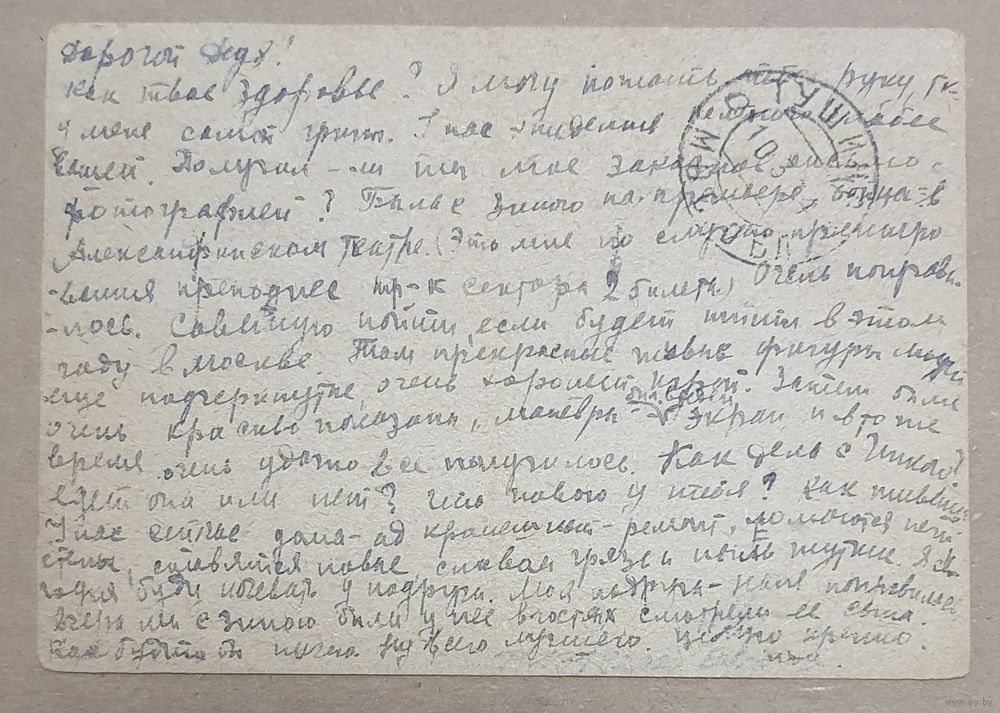 Дорогой Дедя!
Как твое здоровье? Я могу пожать тебе руку, т.к.
у меня самой грипп. У нас эпидемия
Получил-ли ты мое заказное письмо с
фотографией? Была с Зиною на премьере в
Александринском театре. (Это мне по случаю премиро
-вания преподнес тр-к сектора 2 билета) Очень понрави-
-лось. Советую пойти, если будет идти в этом
году в Москве. Там прекрасные живые фигуры людей
еще подчеркнутые очень хорошей игрой. Затем были
очень красиво показаны, маневры - экран и в то же
время очень удачно все получилось. Как дела с
едет она или нет? Что нового у тебя? Как живешь
У нас сейчас дома - ад кромешный - ремонт, ломаются печи
стены, ставятся новые, словом грязь и пыль жуткие. Я се-
годня буду ночевать у подруги. Моя подруга -
вчера мы с Зиною были у нее в гостях смотрели ее сына.
Как будто бы ничего. Ну всего лучшего. Целую крепко.